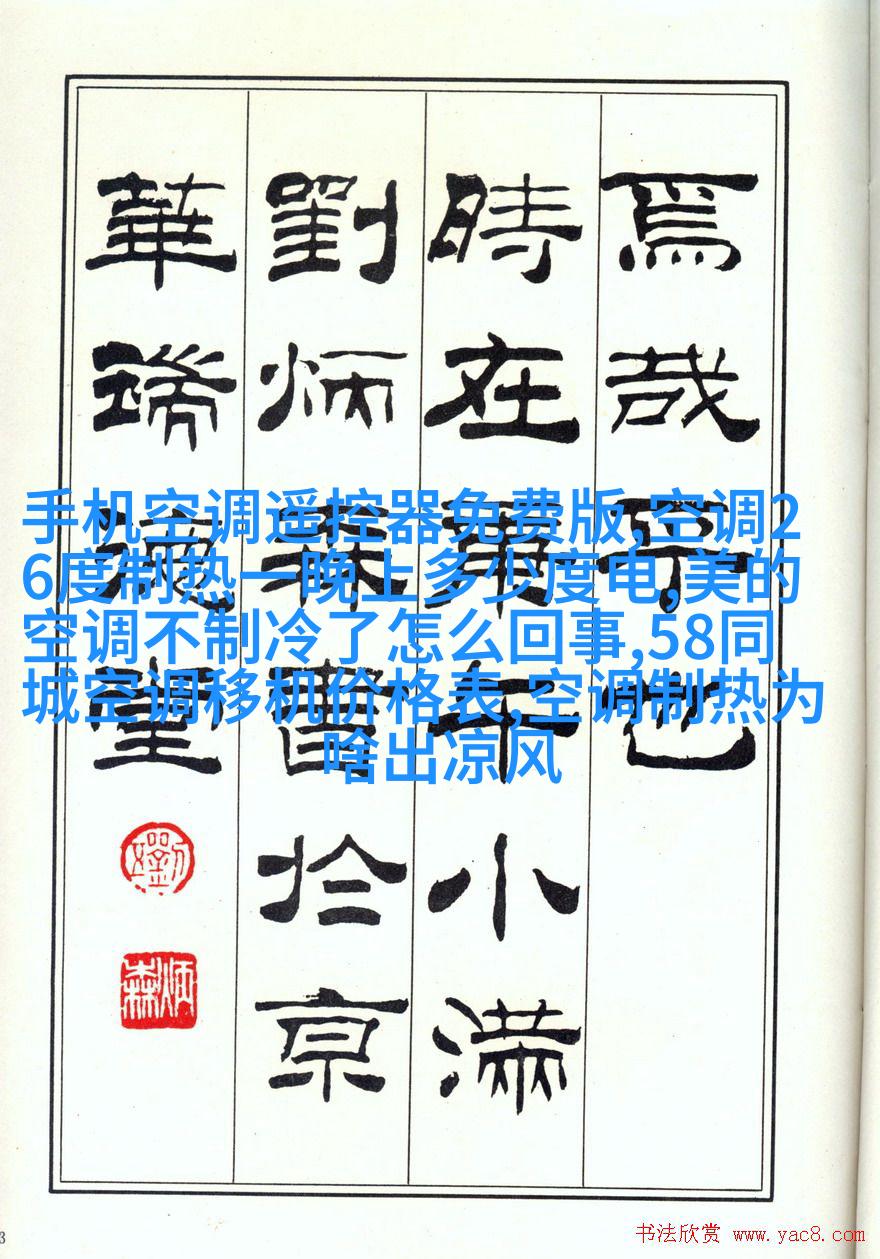 焉哉乎也
時在庚午小滿
劉炳森書於京
華堂
炳森
手机空调遥控器免费版,空调2
6度制热一晚上多少度电,美的
空调不制冷了怎么回事,58同
城空调移机价格表,空调制热为
啥出凉风
书法欣赏 www.yac8.com
3